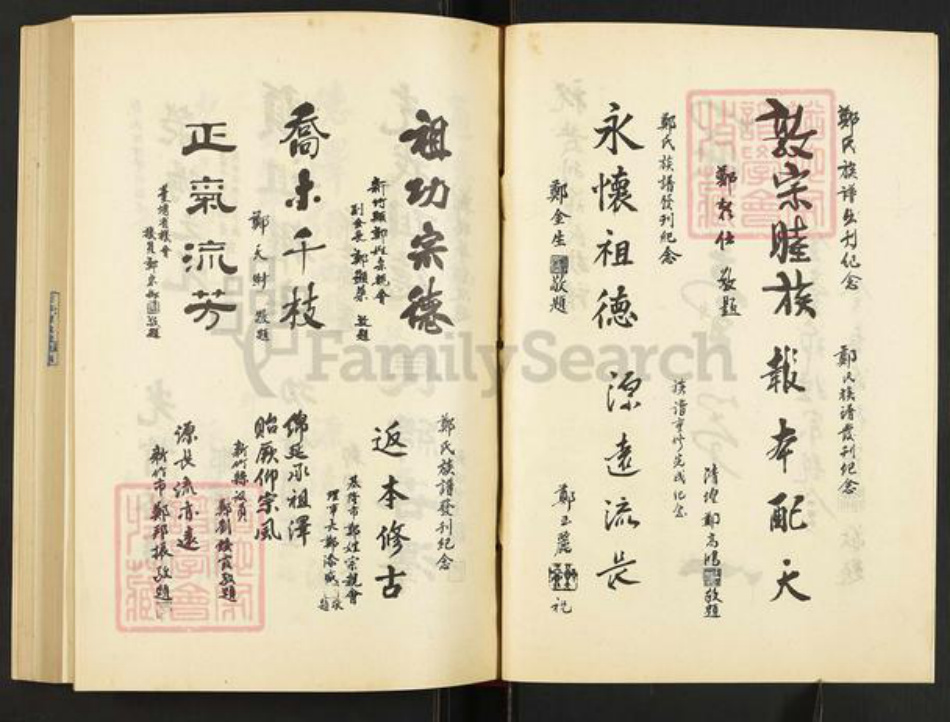 鄭氏族譜出刊紀念
敦宗睦族
敬題
鄭氏族譜發刊紀念
報本配天
清水 鄭高鴻 敬題
鄭氏族譜發刊紀念
永懷祖德
鄭金生 敬題
族譜重修完成紀念
源遠流長
鄭玉麗 祝
祖功宗德
新竹縣鄭姓宗親會
副會長 鄭顯榮 敬題
喬木千枝
鄭天財 敬題
正氣流芳
鄭氏族譜發刊紀念
返本修古
基隆市鄭姓宗親會
理事長 鄭添盛 敬題
綿延承祖澤
貽厥仰宗風
新竹縣議員
敬題
源長流亦遠
新竹市 鄭邦振 敬題
FamilySearch